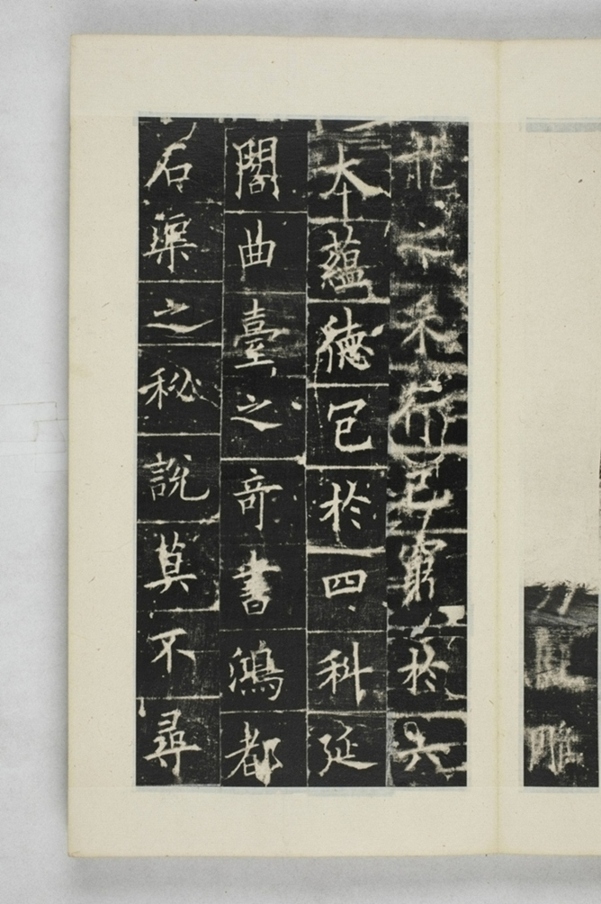 行己窮於六
本蘊德包於四科延
閣曲臺之奇書鴻都
石渠之秘說莫不尋